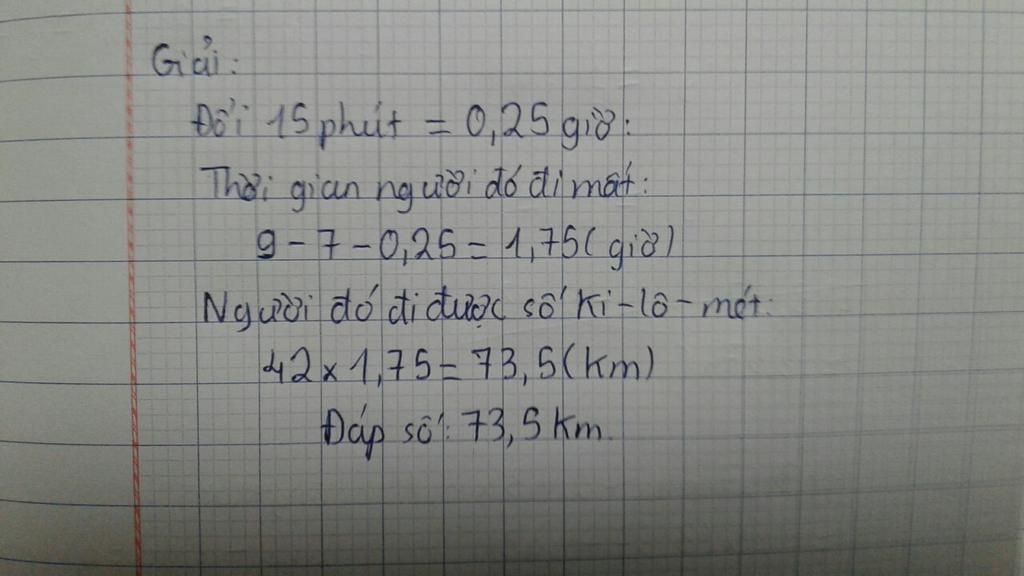 Giải:
Đổi 15 phút = 0,25 giờ:
Thời gian người đó đi mất:
9 - 7 - 0,25 = 1,75 (giờ)
Người đó đi được số ki-lô-mét:
42 x 1,75 = 73,5 (km)
Đáp số: 73,5 km.